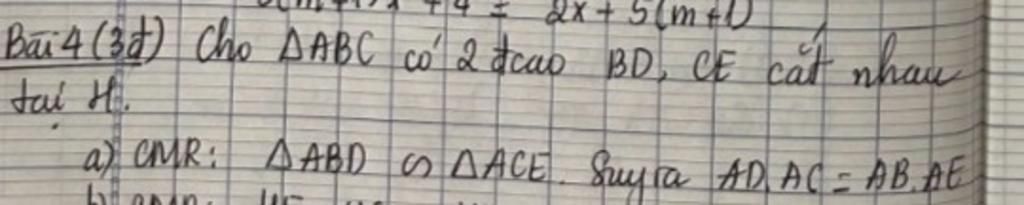 +4 = 2x + 5(m+1)
Bài 4 (3đ) Cho ΔABC có 2 đcao BD, CE cắt nhau
tại H.
a) CMR: ΔABD ∽ ΔACE. Suy ra AD.AC = AB.AE